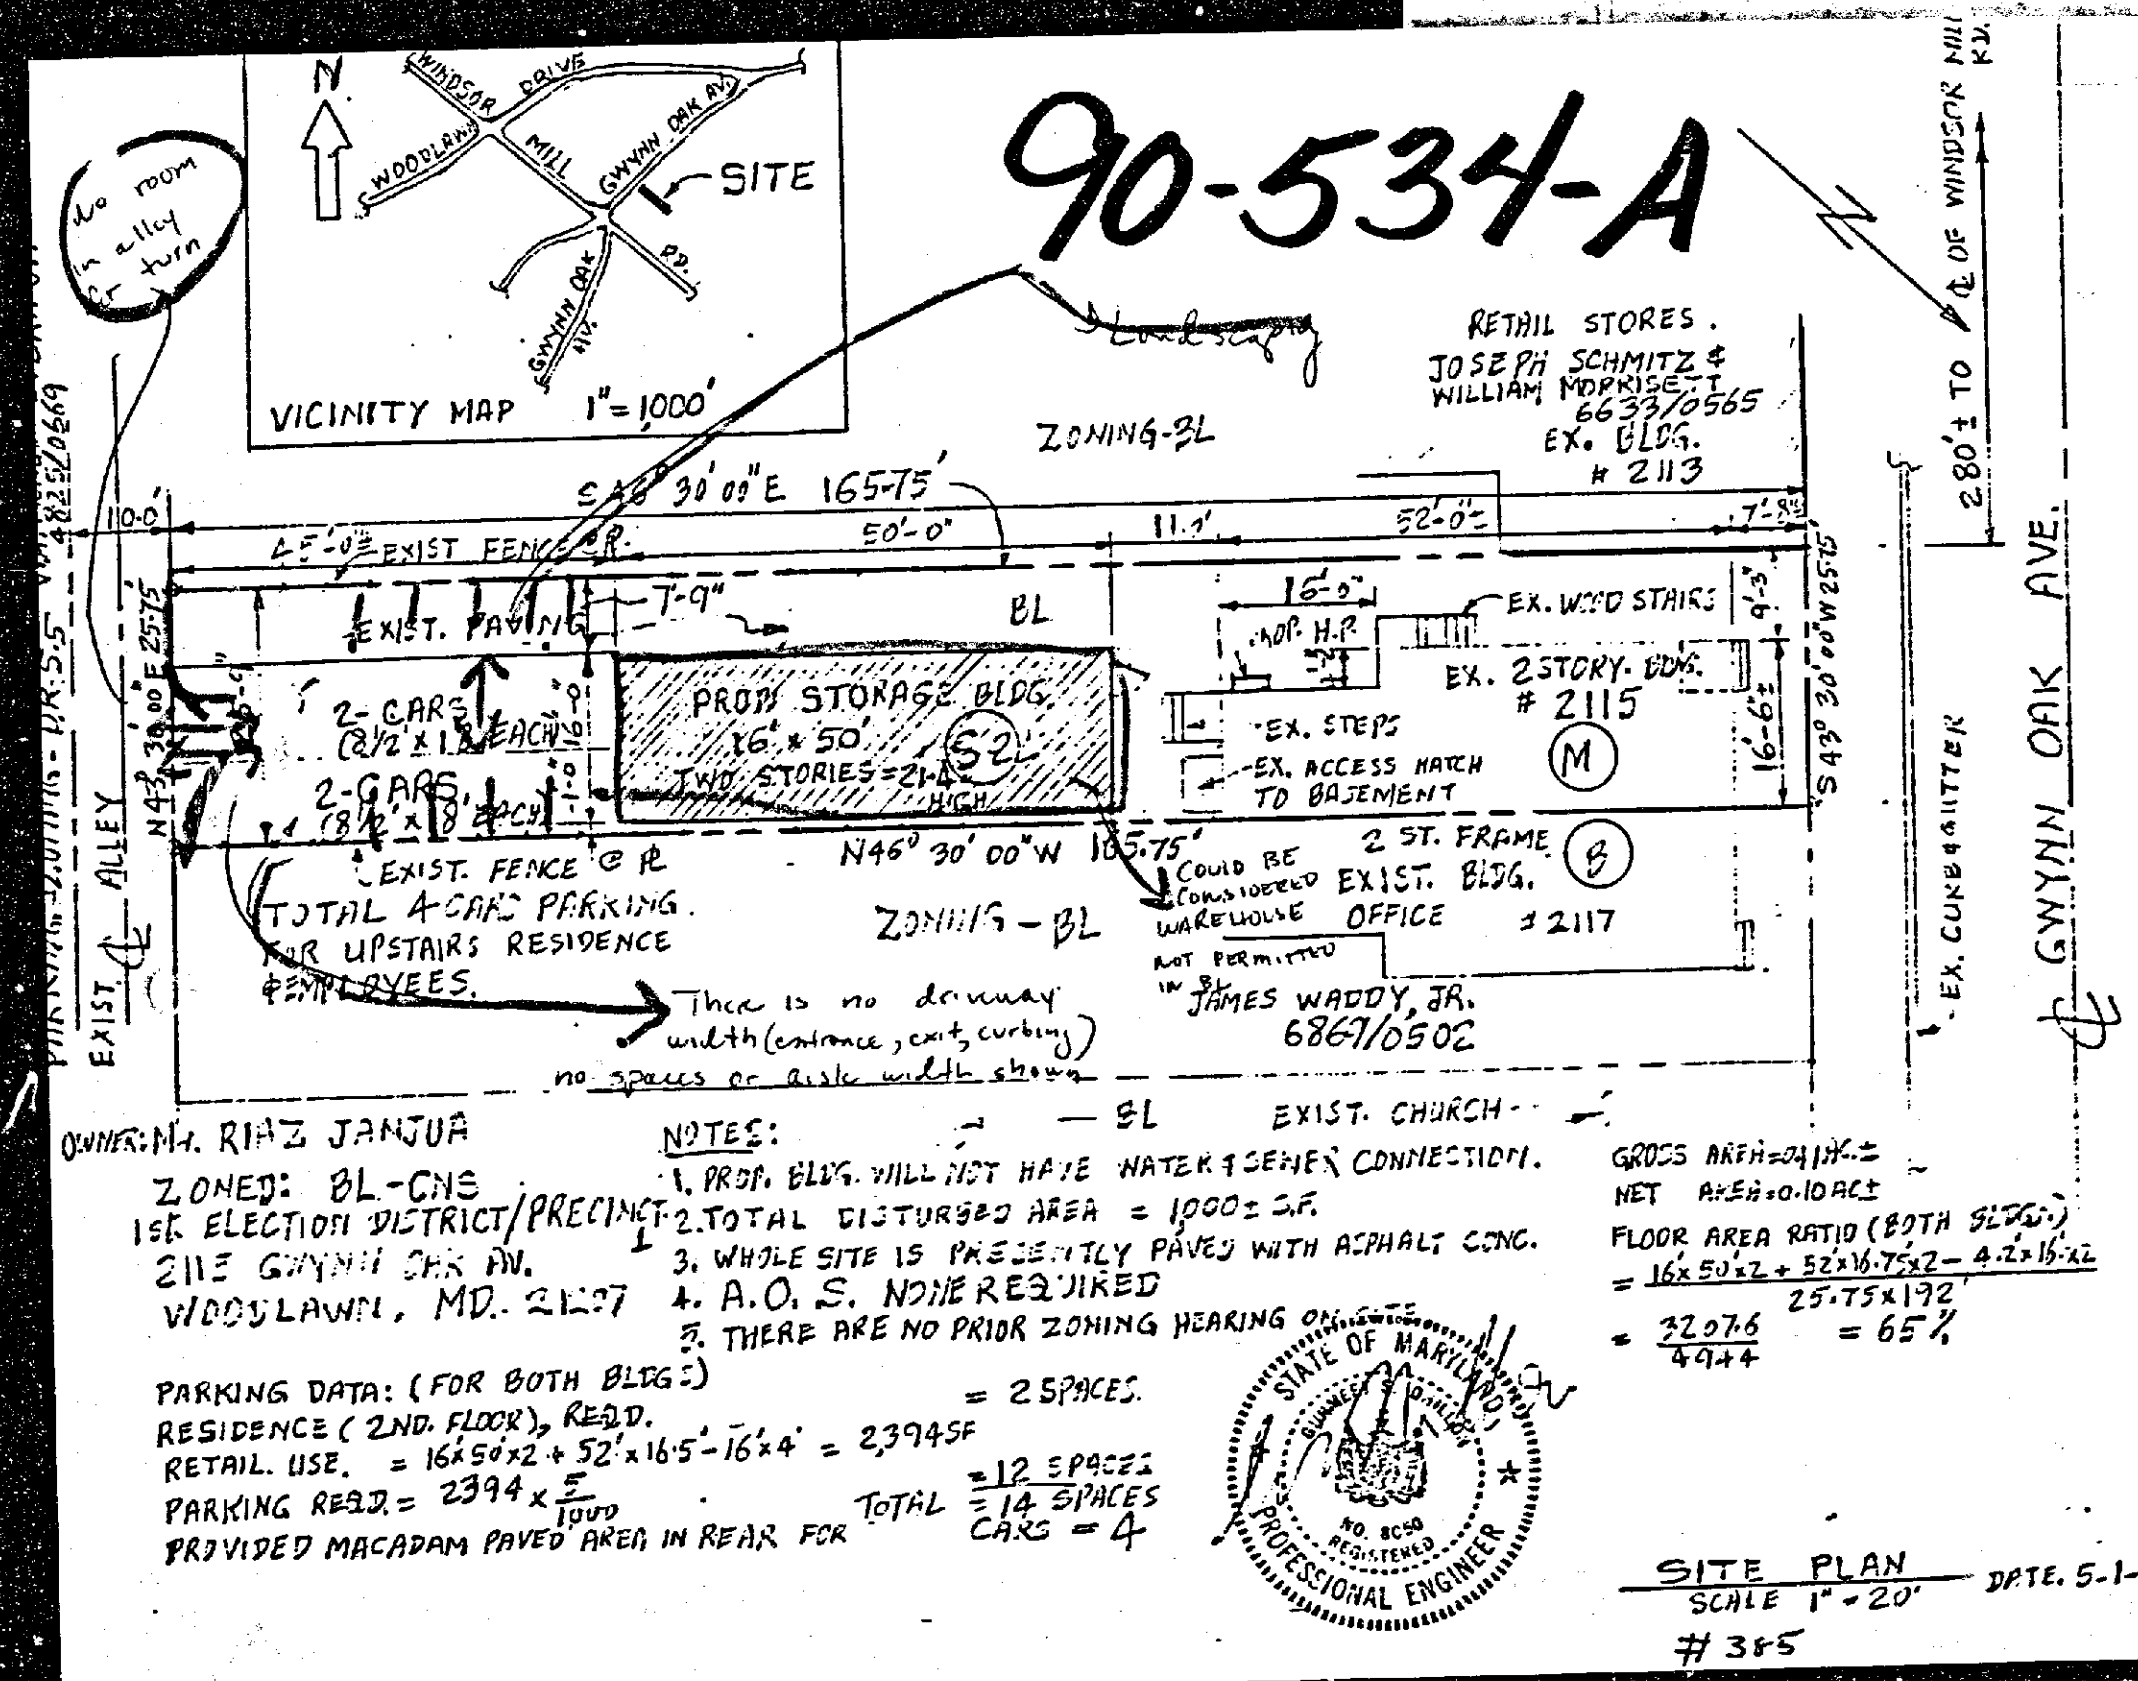 90-534-A
N
WINDSOR
MILL
RD.
WOODLAWN
DRIVE
GWYNN OAK AV.
GWYNN OAK
AV.
SITE
VICINITY MAP 1"=1,000'
No room
in alley
for turn
Landscaping
RETAIL STORES.
JOSEPH SCHMITZ &
WILLIAM MORRISETT
6633/0565
EX. BLDG.
# 2113
ZONING-BL
280'± TO ℄ OF WINDSOR MILL
RD.
S 46° 30' 00" E 165.75'
10.0'
45'-0"± EXIST FENCE
50'-0"
52'-0"±
EXIST. PAVING
7'-9"
BL
16'-0"
EX. WOOD STAIRS
9'-3"
S 43° 30' 00" W 25.75'
N 43° 30' 00" E 25.75'
PROP. H.P.
EX. 2 STORY. BLDG.
# 2115
M
16'-6"±
PROP. STORAGE BLDG.
16' x 50'
S2
TWO STORIES = 21-4
HIGH
2-CARS
(8½' x 18' EACH)
16'-0"
2-CARS.
(8½' x 18' EACH)
1'-0"
EX. STEPS
EX. ACCESS HATCH
TO BASEMENT
EXIST. FENCE @ ℙL
N46° 30' 00" W 165.75'
TOTAL 4 CARS PARKING
FOR UPSTAIRS RESIDENCE
& EMPLOYEES.
ZONING - BL
COULD BE
CONSIDERED
WAREHOUSE
NOT PERMITTED
IN BL
2 ST. FRAME
EXIST. BLDG.
OFFICE # 2117
B
JAMES WADDY, JR.
6867/0502
There is no driveway
width (entrance, exit, curbing)
no spaces or aisle width shown
EXIST. ℄ ALLEY
4825/0669
D.R.-5.5
EX. CURB & GUTTER
℄ GWYNN OAK AVE.
BL EXIST. CHURCH
OWNER: Mr. RIAZ JANJUA
ZONED: BL-CNS
1st. ELECTION DISTRICT/PRECINCT 1
2115 GWYNN OAK AV.
WOODLAWN, MD. 21207
NOTES:
1. PROP. BLDG. WILL NOT HAVE WATER & SEWER CONNECTION.
2. TOTAL DISTURBED AREA = 1,000± S.F.
3. WHOLE SITE IS PRESENTLY PAVED WITH ASPHALT CONC.
4. A.O.S. NONE REQUIRED
5. THERE ARE NO PRIOR ZONING HEARING ON SITE
GROSS AREA=0.11AC.±
NET AREA=0.10 AC±
FLOOR AREA RATIO (BOTH BLDGS.)
= 16'x50'x2 + 52'x16.75x2 - 4.2'x16'x2
25.75 x 192'
= 3207.6 = 65%
4944
PARKING DATA: (FOR BOTH BLDGS)
RESIDENCE (2ND. FLOOR), REQD. = 2 SPACES.
RETAIL. USE. = 16'x50'x2 + 52'x16.5'-16'x4' = 2,394SF
PARKING REQD. = 2394 x 5 = 12 SPACES
1000
TOTAL = 14 SPACES
PROVIDED MACADAM PAVED AREA IN REAR FOR CARS = 4
STATE OF MARYLAND
REGISTERED
PROFESSIONAL ENGINEER
SITE PLAN
SCALE 1" = 20'
DATE. 5-1-
# 385